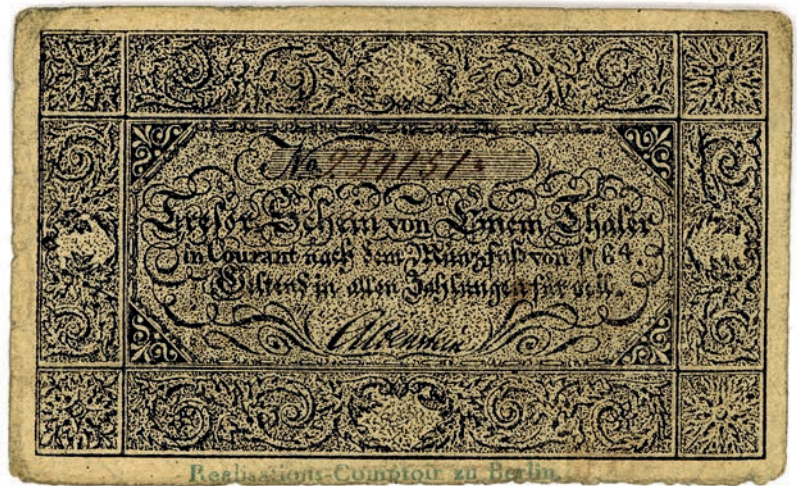 No
Tresor-Schein von Einem Thaler
in Courant nach dem Münzfuß von 1764.
Geltend in allen Zahlungen für voll.
Realisations-Comptoir zu Berlin.